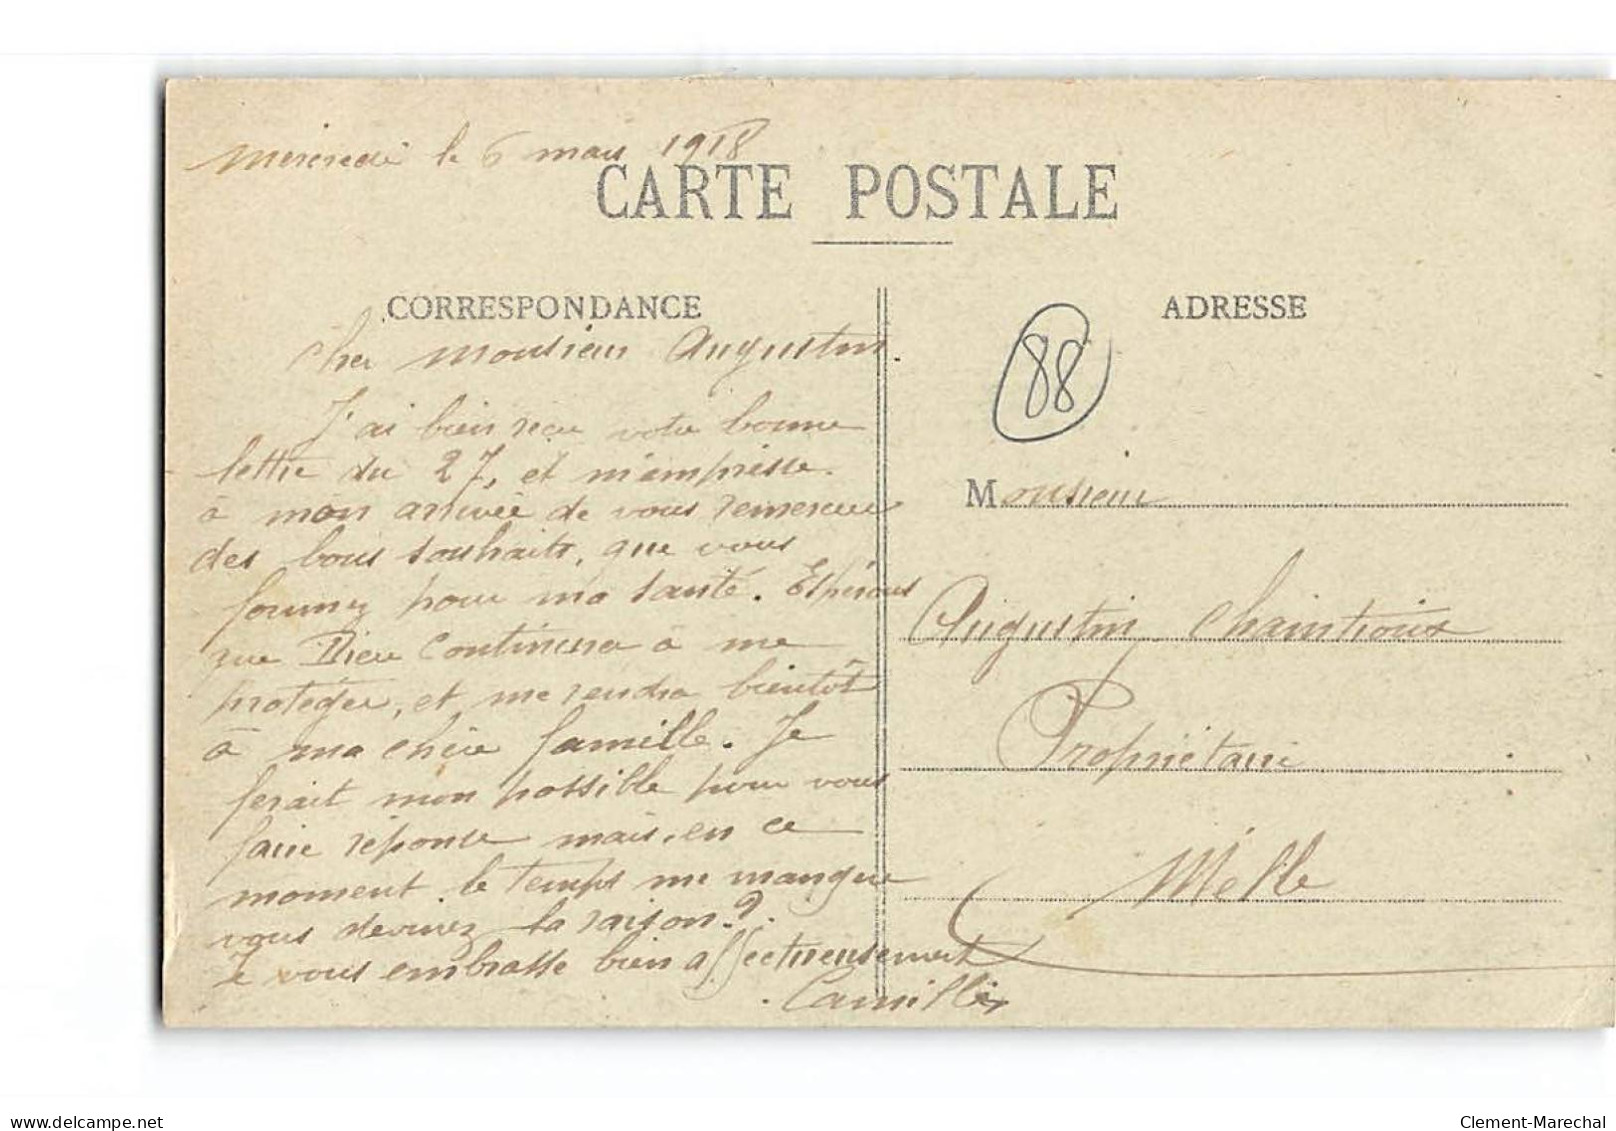 Mercredi le 6 mars 1918
CARTE POSTALE
CORRESPONDANCE
Cher Monsieur Augustin.
J'ai bien reçu votre bonne
lettre du 27, et m'empresse
à mon arrivée de vous remercier
des bons souhaits, que vous
formez pour ma santé. Espérons
que Dieu Continuera à me
protéger, et me rendra bientôt
à ma chère famille. Je
ferait mon possible pour vous
faire réponse mais, en ce
moment le temps me manque
vous devinez la raison?
Je vous embrasse bien affectueusement
Camille
ADRESSE
88
Monsieur
Augustin Chaintrioux
Propriétaire
Melle
delcampe.net
Clement-Marechal